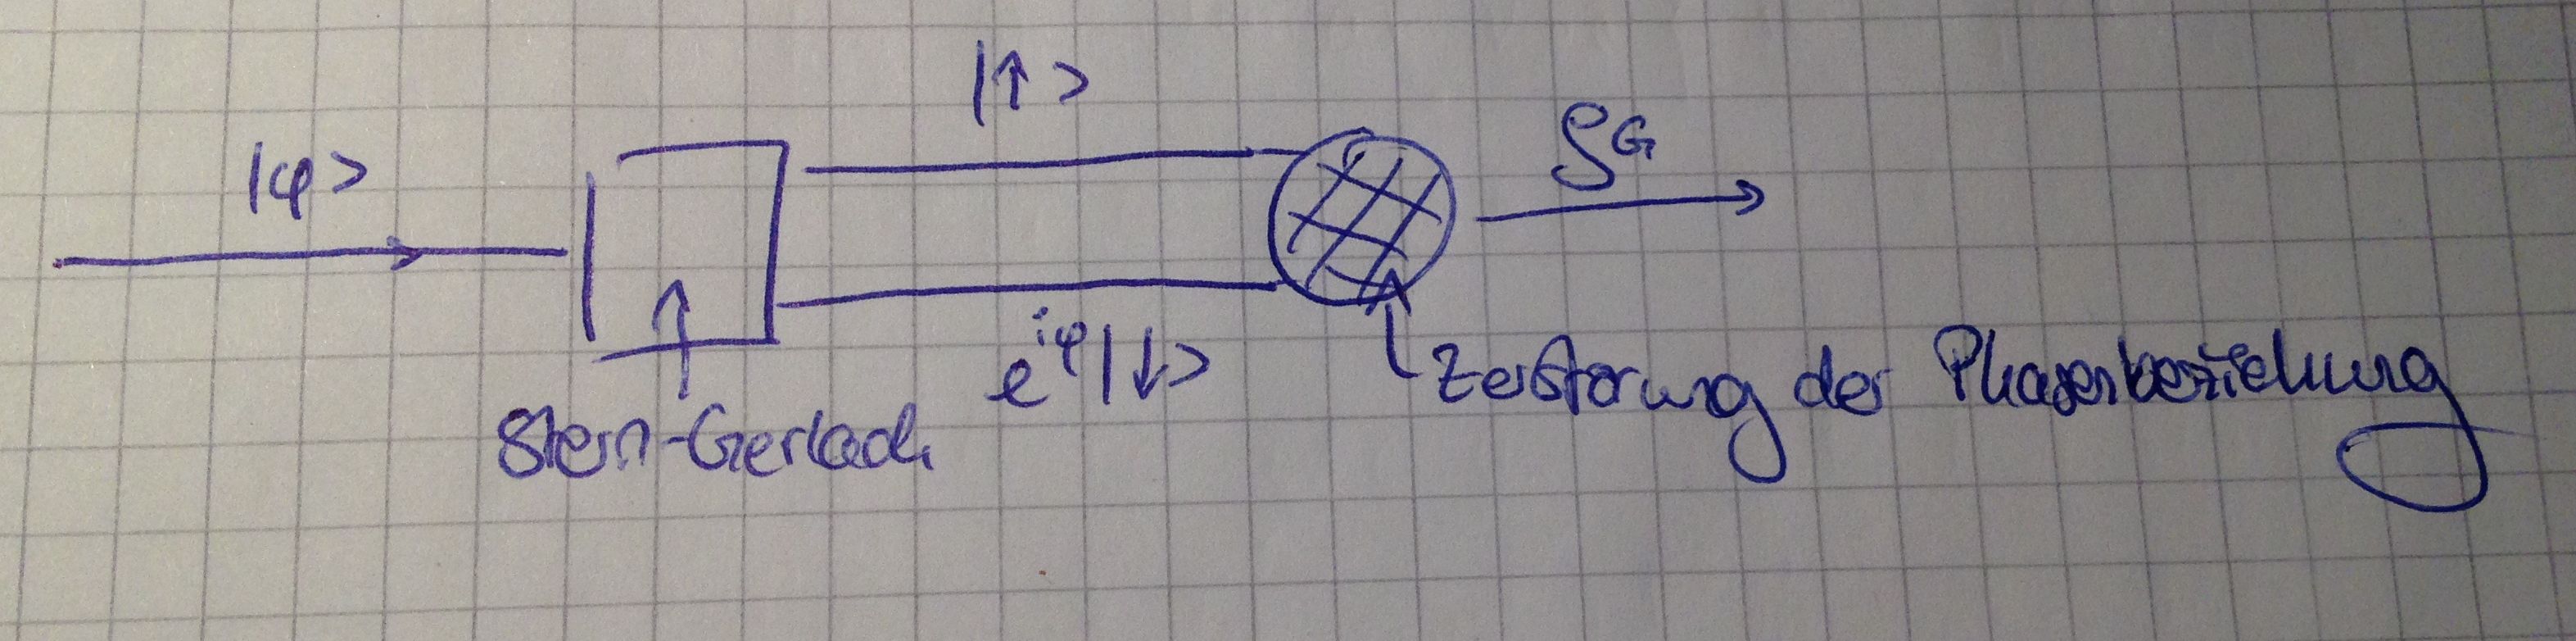 |φ>
|↑>
ρG
e^{iφ}|↓>
Stern-Gerlach
Zerstörung der Phasenbeziehung